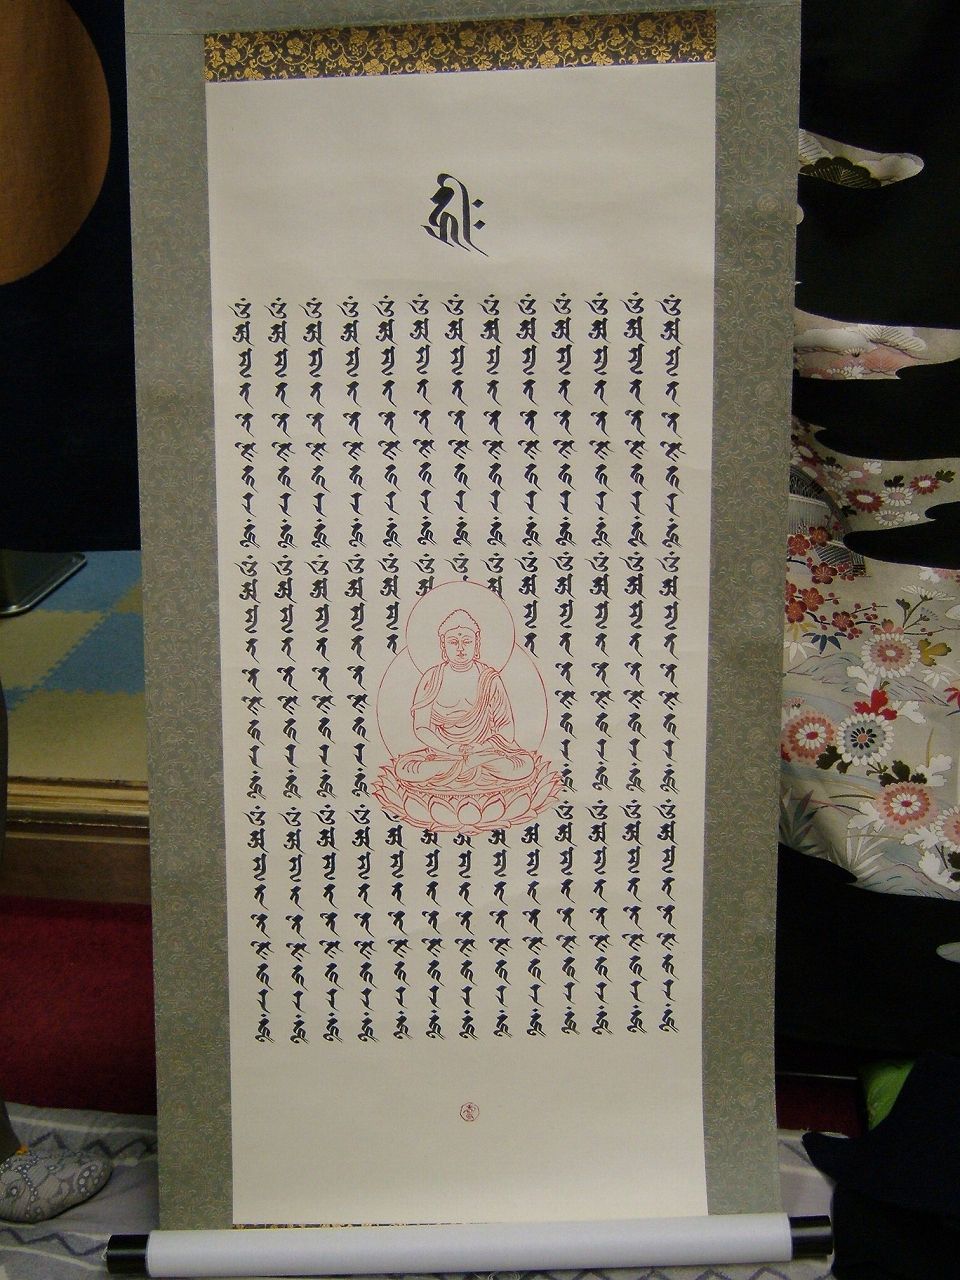 𑖮𑖿𑖨𑖱𑖾
𑖌𑖼𑖀𑖦𑖴𑖝𑖝𑖸𑖕𑖸𑖮𑖨𑖮𑖳𑖼𑖌𑖼𑖀𑖦𑖴𑖝𑖝𑖸𑖕𑖸𑖮𑖨𑖮𑖳𑖼𑖌𑖼𑖀𑖦𑖴𑖝𑖝𑖸𑖕𑖸𑖮𑖨𑖮𑖳𑖼
𑖌𑖼𑖀𑖦𑖴𑖝𑖝𑖸𑖕𑖸𑖮𑖨𑖮𑖳𑖼𑖌𑖼𑖀𑖦𑖴𑖝𑖝𑖸𑖕𑖸𑖮𑖨𑖮𑖳𑖼𑖌𑖼𑖀𑖦𑖴𑖝𑖝𑖸𑖕𑖸𑖮𑖨𑖮𑖳𑖼
𑖌𑖼𑖀𑖦𑖴𑖝𑖝𑖸𑖕𑖸𑖮𑖨𑖮𑖳𑖼𑖌𑖼𑖀𑖦𑖴𑖝𑖝𑖸𑖕𑖸𑖮𑖨𑖮𑖳𑖼𑖌𑖼𑖀𑖦𑖴𑖝𑖝𑖸𑖕𑖸𑖮𑖨𑖮𑖳𑖼
𑖌𑖼𑖀𑖦𑖴𑖝𑖝𑖸𑖕𑖸𑖮𑖨𑖮𑖳𑖼𑖌𑖼𑖀𑖦𑖴𑖝𑖝𑖸𑖕𑖸𑖮𑖨𑖮𑖳𑖼𑖌𑖼𑖀𑖦𑖴𑖝𑖝𑖸𑖕𑖸𑖮𑖨𑖮𑖳𑖼
𑖌𑖼𑖀𑖦𑖴𑖝𑖝𑖸𑖕𑖸𑖮𑖨𑖮𑖳𑖼𑖌𑖼𑖀𑖦𑖴𑖝𑖀𑖦𑖴𑖝𑖝𑖸𑖕𑖸𑖮𑖨𑖮𑖳𑖼
𑖌𑖼𑖀𑖦𑖴𑖝𑖝𑖸𑖕𑖸𑖮𑖨𑖮𑖳𑖼𑖌𑖼𑖀𑖀𑖦𑖴𑖝𑖝𑖸𑖕𑖸𑖮𑖨𑖮𑖳𑖼
𑖌𑖼𑖀𑖦𑖴𑖝𑖝𑖸𑖕𑖸𑖮𑖨𑖮𑖳𑖼𑖌𑖼𑖀𑖦𑖴𑖝𑖝𑖸𑖕𑖸𑖮𑖨𑖮𑖳𑖼
𑖌𑖼𑖀𑖦𑖴𑖝𑖝𑖸𑖕𑖸𑖮𑖨𑖮𑖳𑖼𑖌𑖼𑖀𑖀𑖦𑖴𑖝𑖝𑖸𑖕𑖸𑖮𑖨𑖮𑖳𑖼
𑖌𑖼𑖀𑖦𑖴𑖝𑖝𑖸𑖕𑖸𑖮𑖨𑖮𑖳𑖼𑖌𑖼𑖀𑖦𑖴𑖝𑖀𑖦𑖴𑖝𑖝𑖸𑖕𑖸𑖮𑖨𑖮𑖳𑖼
𑖌𑖼𑖀𑖦𑖴𑖝𑖝𑖸𑖕𑖸𑖮𑖨𑖮𑖳𑖼𑖌𑖼𑖀𑖦𑖴𑖝𑖝𑖸𑖕𑖸𑖮𑖨𑖮𑖳𑖼𑖌𑖼𑖀𑖦𑖴𑖝𑖝𑖸𑖕𑖸𑖮𑖨𑖮𑖳𑖼
𑖌𑖼𑖀𑖦𑖴𑖝𑖝𑖸𑖕𑖸𑖮𑖨𑖮𑖳𑖼𑖌𑖼𑖀𑖦𑖴𑖝𑖝𑖸𑖕𑖸𑖮𑖨𑖮𑖳𑖼𑖌𑖼𑖀𑖦𑖴𑖝𑖝𑖸𑖕𑖸𑖮𑖨𑖮𑖳𑖼
𑖌𑖼𑖀𑖦𑖴𑖝𑖝𑖸𑖕𑖸𑖮𑖨𑖮𑖳𑖼𑖌𑖼𑖀𑖦𑖴𑖝𑖝𑖸𑖕𑖸𑖮𑖨𑖮𑖳𑖼𑖌𑖼𑖀𑖦𑖴𑖝𑖝𑖸𑖕𑖸𑖮𑖨𑖮𑖳𑖼
𑖌𑖼𑖀𑖦𑖴𑖝𑖝𑖸𑖕𑖸𑖮𑖨𑖮𑖳𑖼𑖌𑖼𑖀𑖦𑖴𑖝𑖝𑖸𑖕𑖸𑖮𑖨𑖮𑖳𑖼𑖌𑖼𑖀𑖦𑖴𑖝𑖝𑖸𑖕𑖸𑖮𑖨𑖮𑖳𑖼